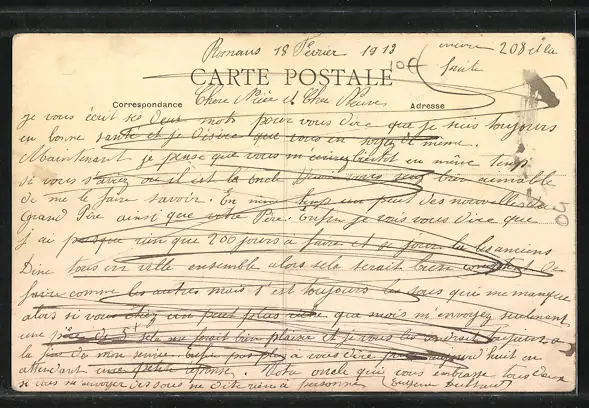 Romans 18 Février 1913
encore 208 et la
fuite
CARTE POSTALE
Correspondance
Adresse
Chere Niece et Cher Neveu
je vous écrit ses deux mots pour vous dire que je suis toujours
en bonne santé et je désire que vous en soyez de même.
Maintenant je pense que vous m'écrirez bientot en même temp
si vous s'aviez ou il est la oncle serez bien aimable
de me le faire savoir. En même temp un peut des nouvelles du
Grand Père ainsi que votre Père. Enfin je vais vous dire que
j'ai presque rien que 200 jours a faire et se jour la les anciens
Dine tous en ville ensemble alors sela serait bien de
faire comme les autres mais s'est toujours les sous qui me manque
alors si vous un peut plus que mois m'envoyez seulement
une pièce de 5f sela me ferait bien plaisir et je vous les a
la fin de mon service. plus a vous dire pour aujourd'huit en
attendant une petite réponse. Votre oncle qui vous embrasse tous deux
si vous m'envoyer des sous ne dite rien a personne Eugène